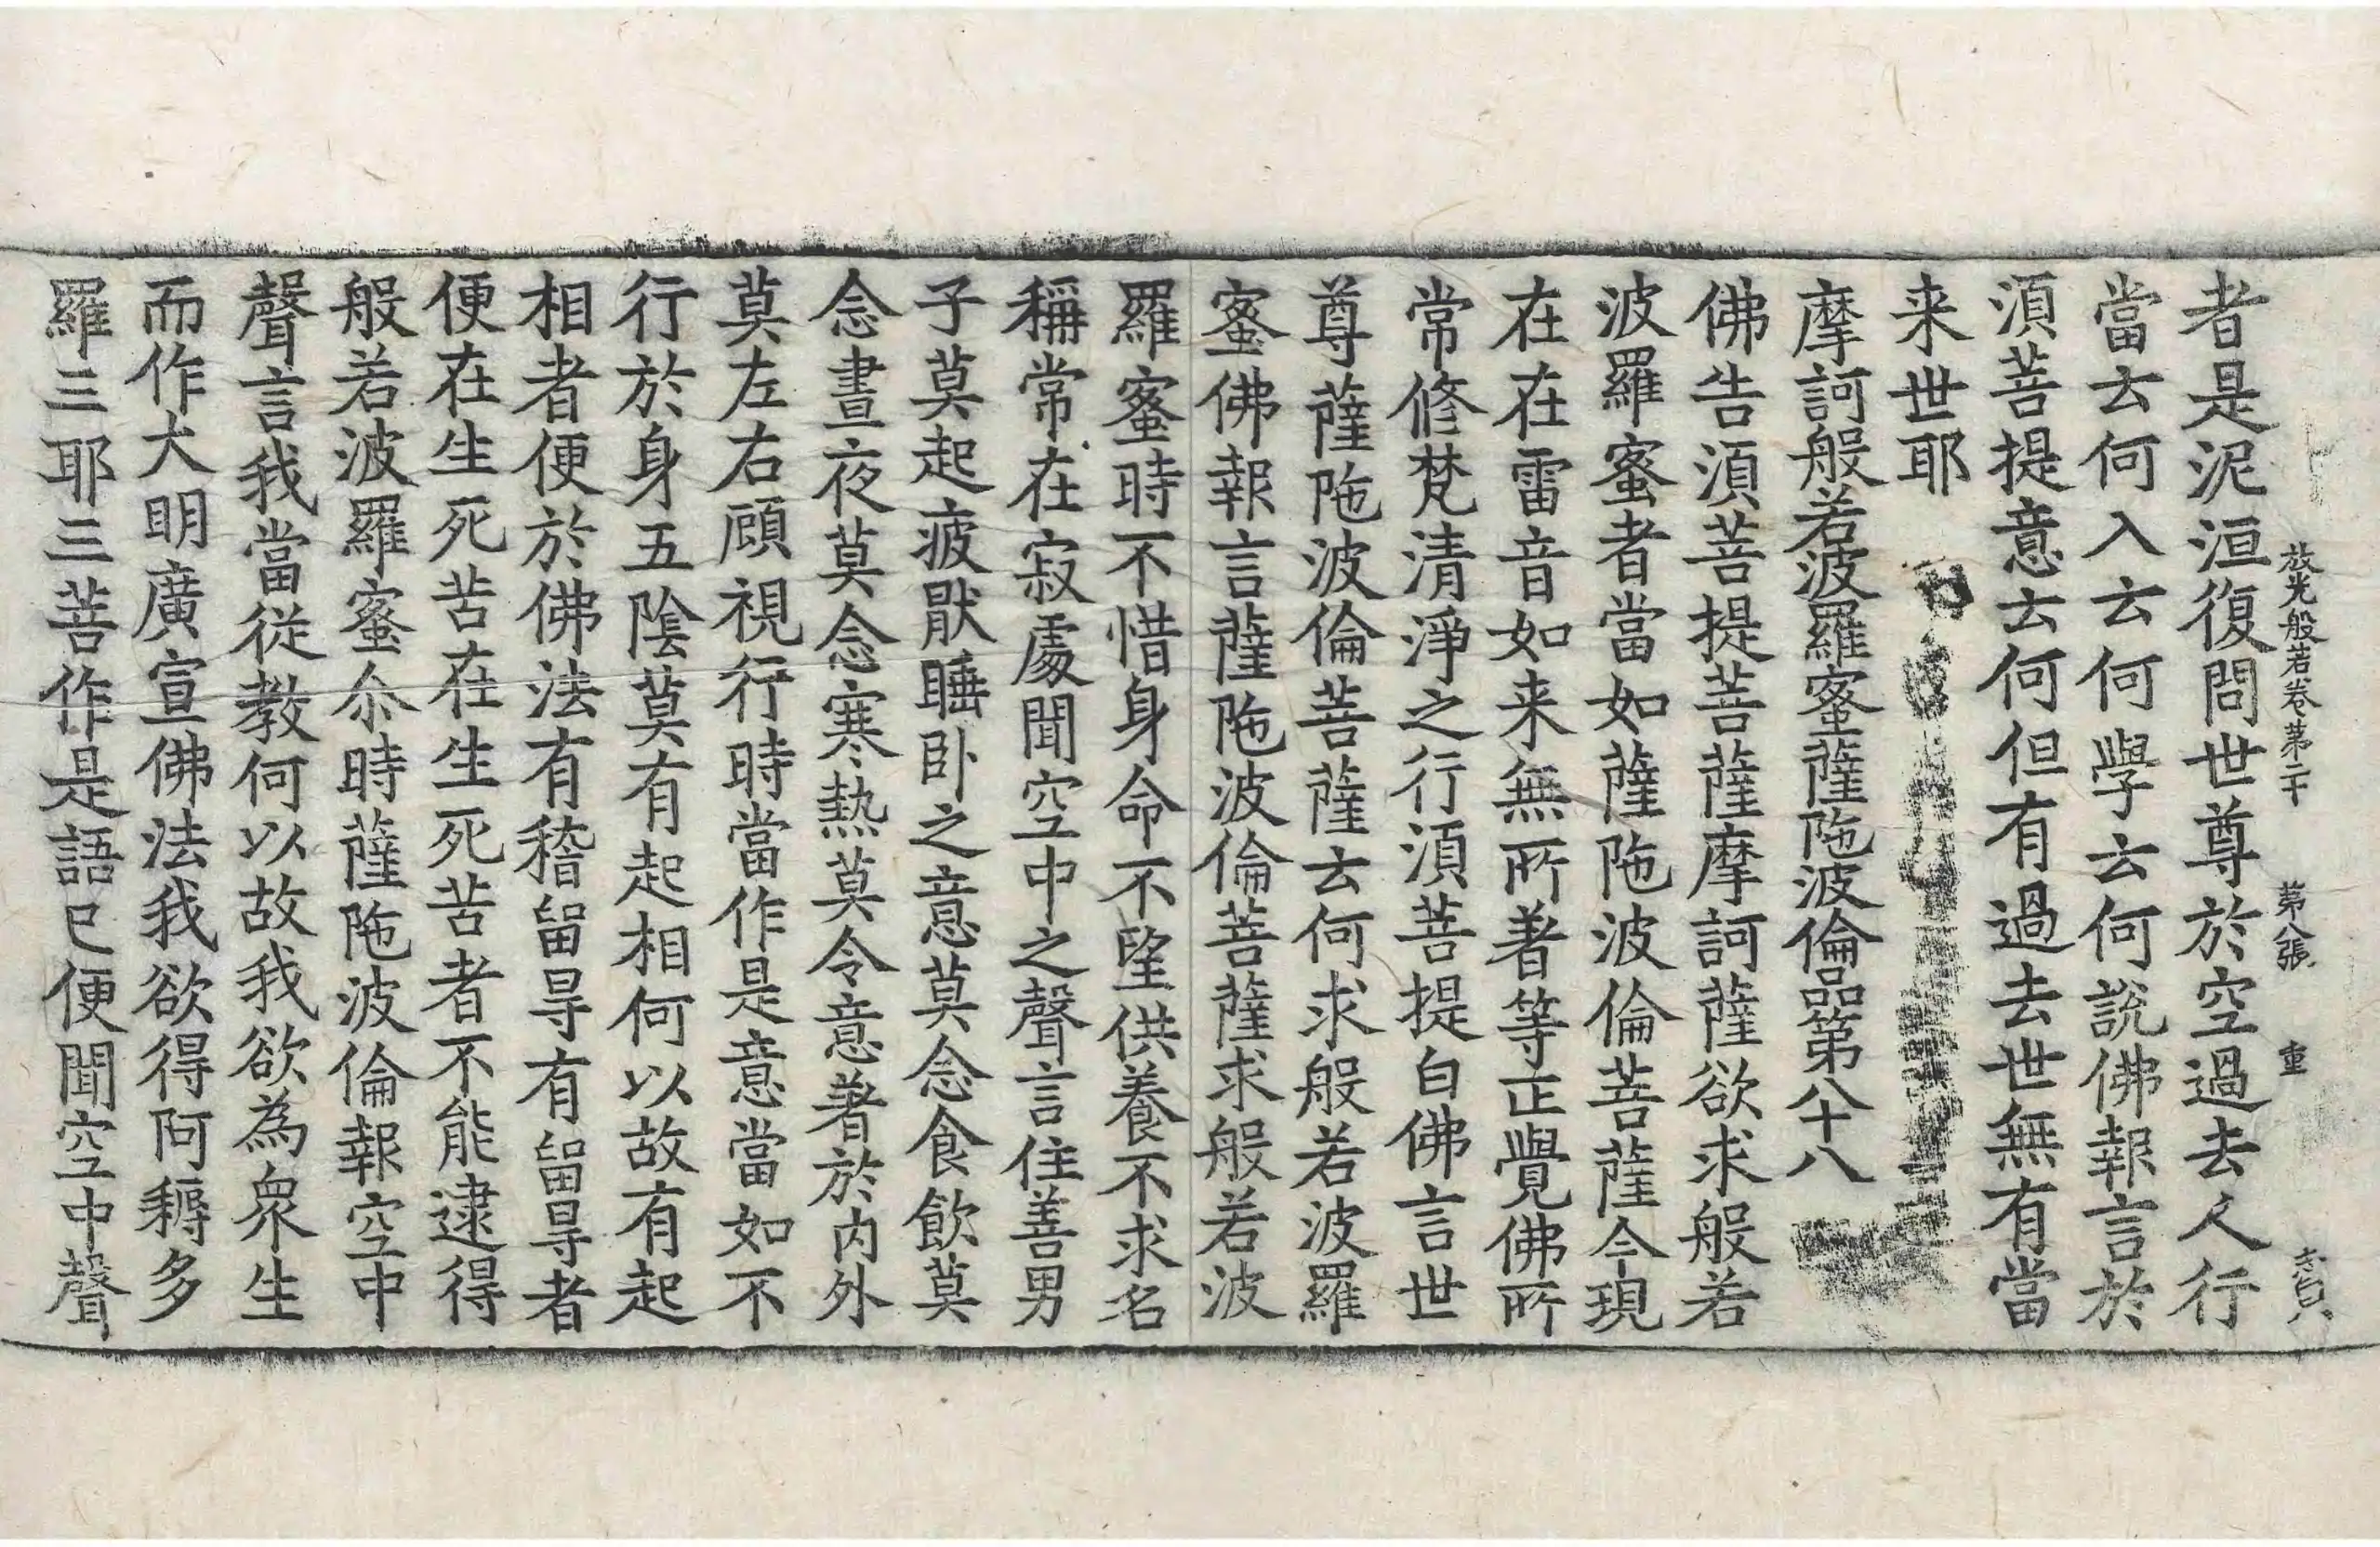 放光般若卷第二十 第八張 重
者是泥洹復問世尊於空過去人行
當云何入云何學云何說佛報言於
須菩提意云何但有過去世無有當
来世耶
摩訶般若波羅蜜薩陁波倫品第八十八
佛告須菩提菩薩摩訶薩欲求般若
波羅蜜者當如薩陁波倫菩薩今現
在在雷音如来無所著等正覺佛所
常修梵清淨之行須菩提白佛言世
尊薩陁波倫菩薩云何求般若波羅
蜜佛報言薩陁波倫菩薩求般若波
羅蜜時不惜身命不望供養不求名
稱常在寂處聞空中之聲言住善男
子莫起疲猒睡卧之意莫念食飲莫
念晝夜莫念寒熱莫令意著於內外
莫左右顧視行時當作是意當如不
行於身五陰莫有起相何以故有起
相者便於佛法有稽留㝵有留㝵者
便在生死苦在生死苦者不能逮得
般若波羅蜜尒時薩陁波倫報空中
聲言我當從教何以故我欲為衆生
而作大明廣宣佛法我欲得阿耨多
羅三耶三菩作是語已便聞空中聲